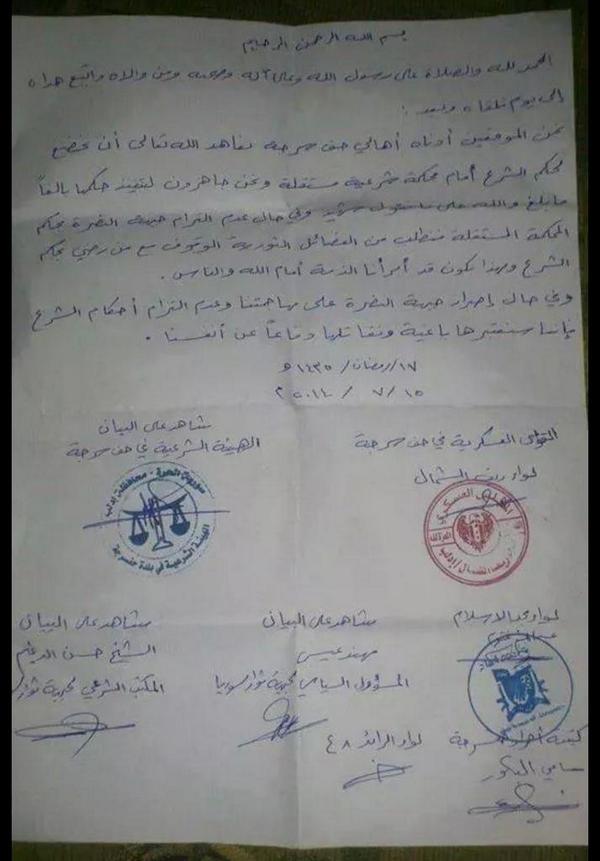 بسم الله الرحمن الرحيم
الحمد لله والصلاة على رسول الله وعلى آله وصحبه ومن والاه واتبع هداه
إلى يوم نلقاه وبعد :
نحن الموقعين أدناه أهالي حف سرجة نعاهد الله تعالى أن نخضع
لحكم الشرع أمام محكمة شرعية مستقلة ونحن جاهزون لتنفيذ حكمها بالغاً
ما بلغ والله على ما نقول شهيد وفي حال عدم التزام جبهة النصرة بحكم
المحكمة المستقلة فنطلب من الفصائل الثورية الوقوف مع من رضي بحكم
الشرع وبهذا نكون قد أبرأنا الذمة أمام الله والناس .
وفي حال إصرار جبهة النصرة على مهاجمتنا وعدم التزام أحكام الشرع
فإننا سنعتبرها باغية ونقاتلها دفاعاً عن أنفسنا .
١٧/رمضان/١٤٣٥ هـ
١٥ / ٧ / ٢٠١٤ م
القوى العسكرية في حف سرجة
لواء ريف الشمال
شاهد على البيان
الهيئة الشرعية في حف سرجة
سوريا الحرة - محافظة إدلب
الهيئة الشرعية في بلدة
لواء مجد الاسلام
كتيبة أحرار سرجة
سامي البكور
شاهد على البيان
مهند عيسى
المسؤول السياسي لجبهة ثوار سوريا
لواء الرائد ٤٨
شاهد على البيان
الشيخ حسن الدغيم
المكتب الشرعي لجبهة ثوار